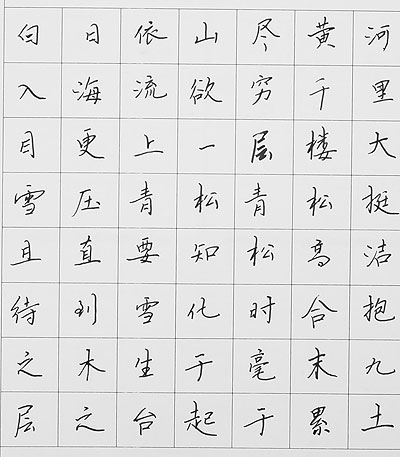 白日依山尽黄河
入海流欲穷千里
目更上一层楼大
雪压青松青松挺
且直要知松高洁
待到雪化时合抱
之木生于毫末九
层之台起于累土